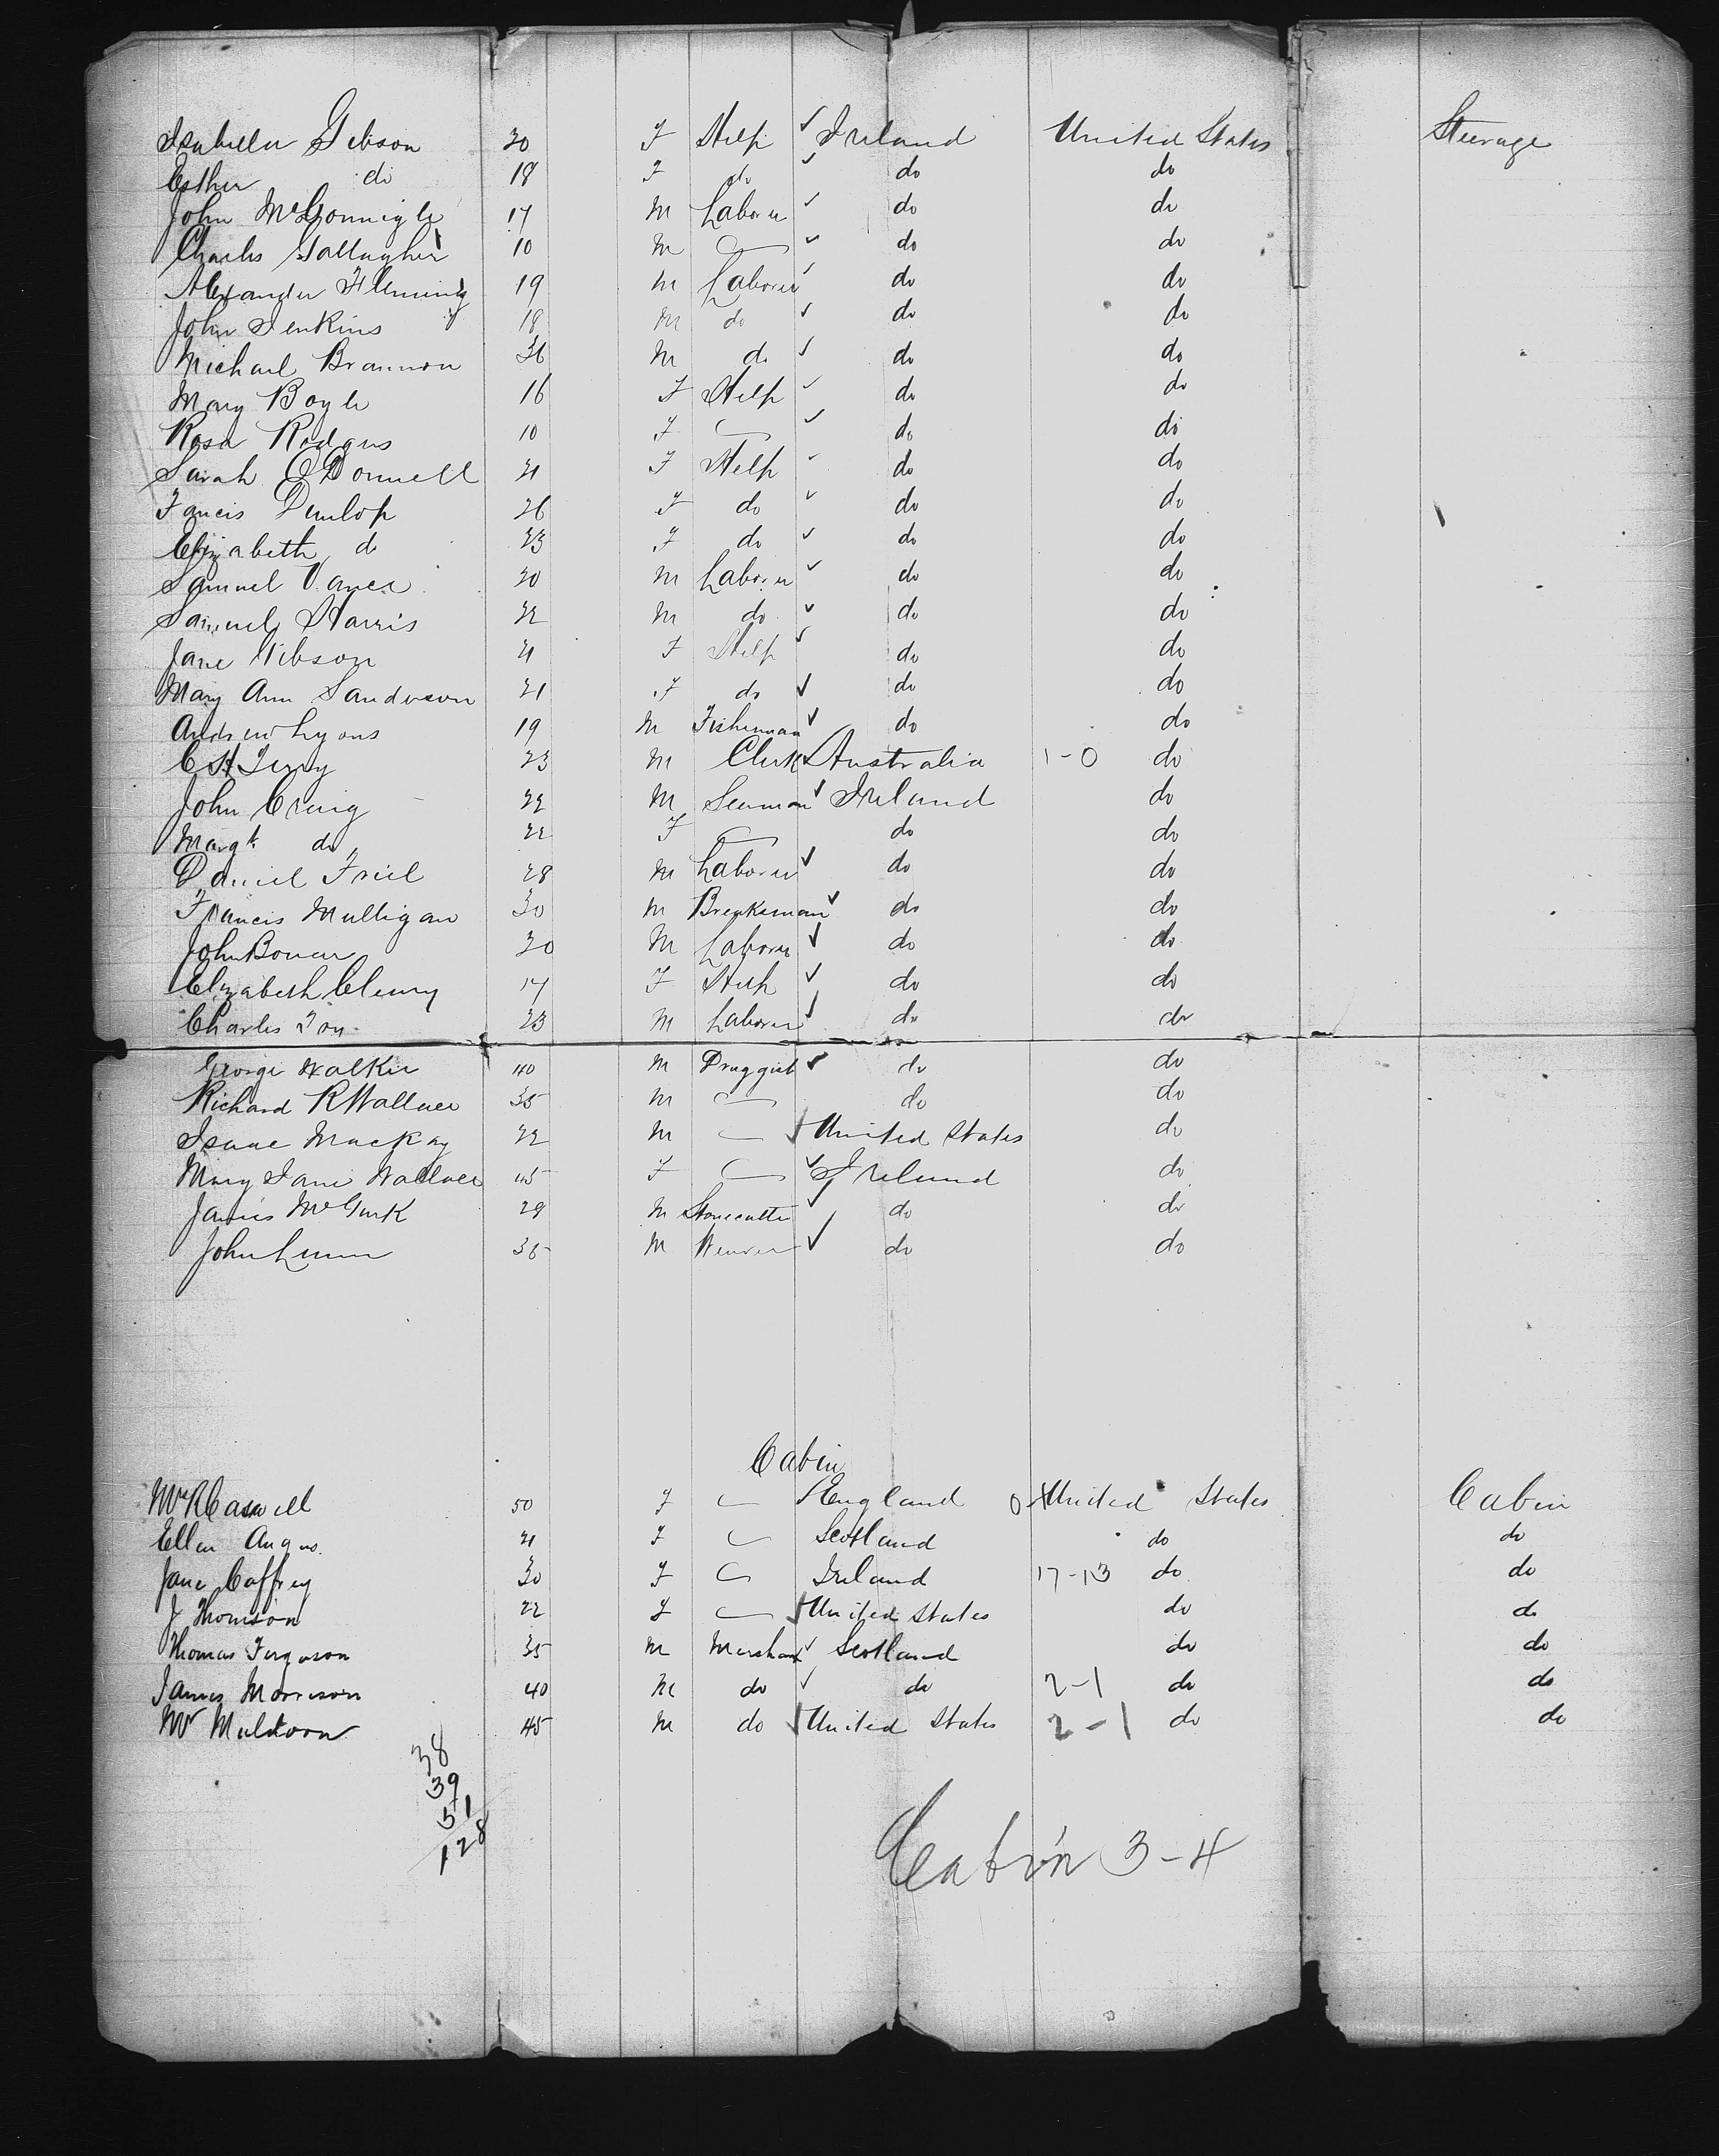 Isabella Gibson 20 F Help Ireland United States Steerage
Esther do 18 F do do do
John McGonnigle 17 M Laborer do do
Charles Gallagher 10 M do do
Alexander Fleming 19 M Laborer do do
John Jenkins 18 M do do do
Michael Brannon 36 M do do do
Mary Boyle 16 F Help do do
Rosa Rodgers 10 F do do
Sarah O'Donnell 21 F Help do do
Fancis Dunlop 26 F do do do
Elizabeth do 23 F do do do
Samuel Vance 20 M Laborer do do
Samuel Harris 22 M do do do
Jane Gibson 21 F Help do do
Mary Ann Sanderson 21 F do do do
Andrew Lyons 19 M Fisherman do do
C H Terry 23 M Clerk Australia 1-0 do
John Craig 22 M Seaman Ireland do
Margt do 22 F do do
Daniel Friel 28 M Laborer do do
Francis Mulligan 30 M Breaksman do do
John Boner 20 M Laborer do do
Elizabeth Cleary 17 F Help do do
Charles Toy 23 M Laborer do do
George Walker 40 M Druggist do do
Richard R Wallace 35 M do do
Isaac Mackay 22 M United States do
Mary Jane Wallace 45 F Ireland do
James McGurk 29 M Stonecutter do do
John Lunn 35 M Weaver do do
Cabin
Mrs R Caswell 50 F England United States Cabin
Ellen Angus 21 F Scotland do do
Jane Caffrey 30 F Ireland 17-13 do do
J Thomson 22 F United States do do
Thomas Ferguson 35 M Merchant Scotland do do
James Morrison 40 M do do 2-1 do do
Mr Muldoon 45 M do United States 2-1 do do
38
39
51
128
Cabin 3-4